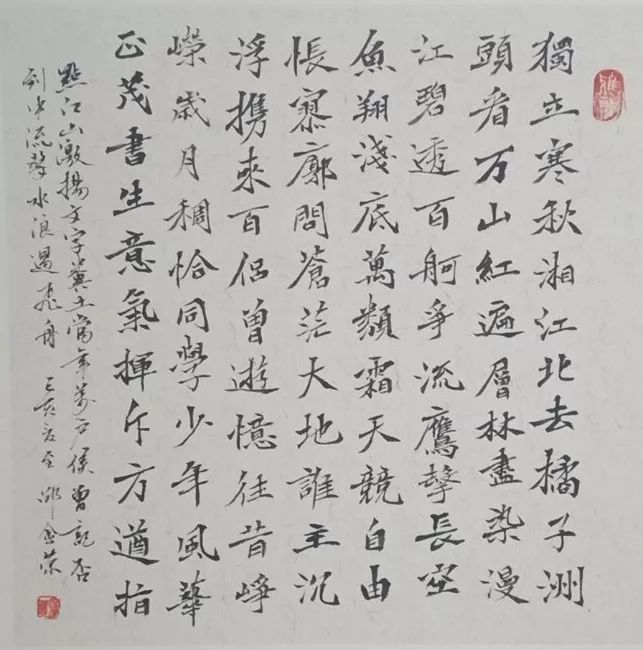 獨立寒秋湘江北去橘子洲
頭看万山紅遍層林盡染漫
江碧透百舸爭流鷹擊長空
魚翔淺底萬類霜天競自由
悵寥廓問蒼茫大地誰主沉
浮携來百侣曾遊憶往昔崢
嶸歲月稠恰同學少年風華
正茂書生意氣揮斥方遒指
點江山激揚文字糞土當年萬户侯曾記否
到中流擊水浪遏飛舟 己亥